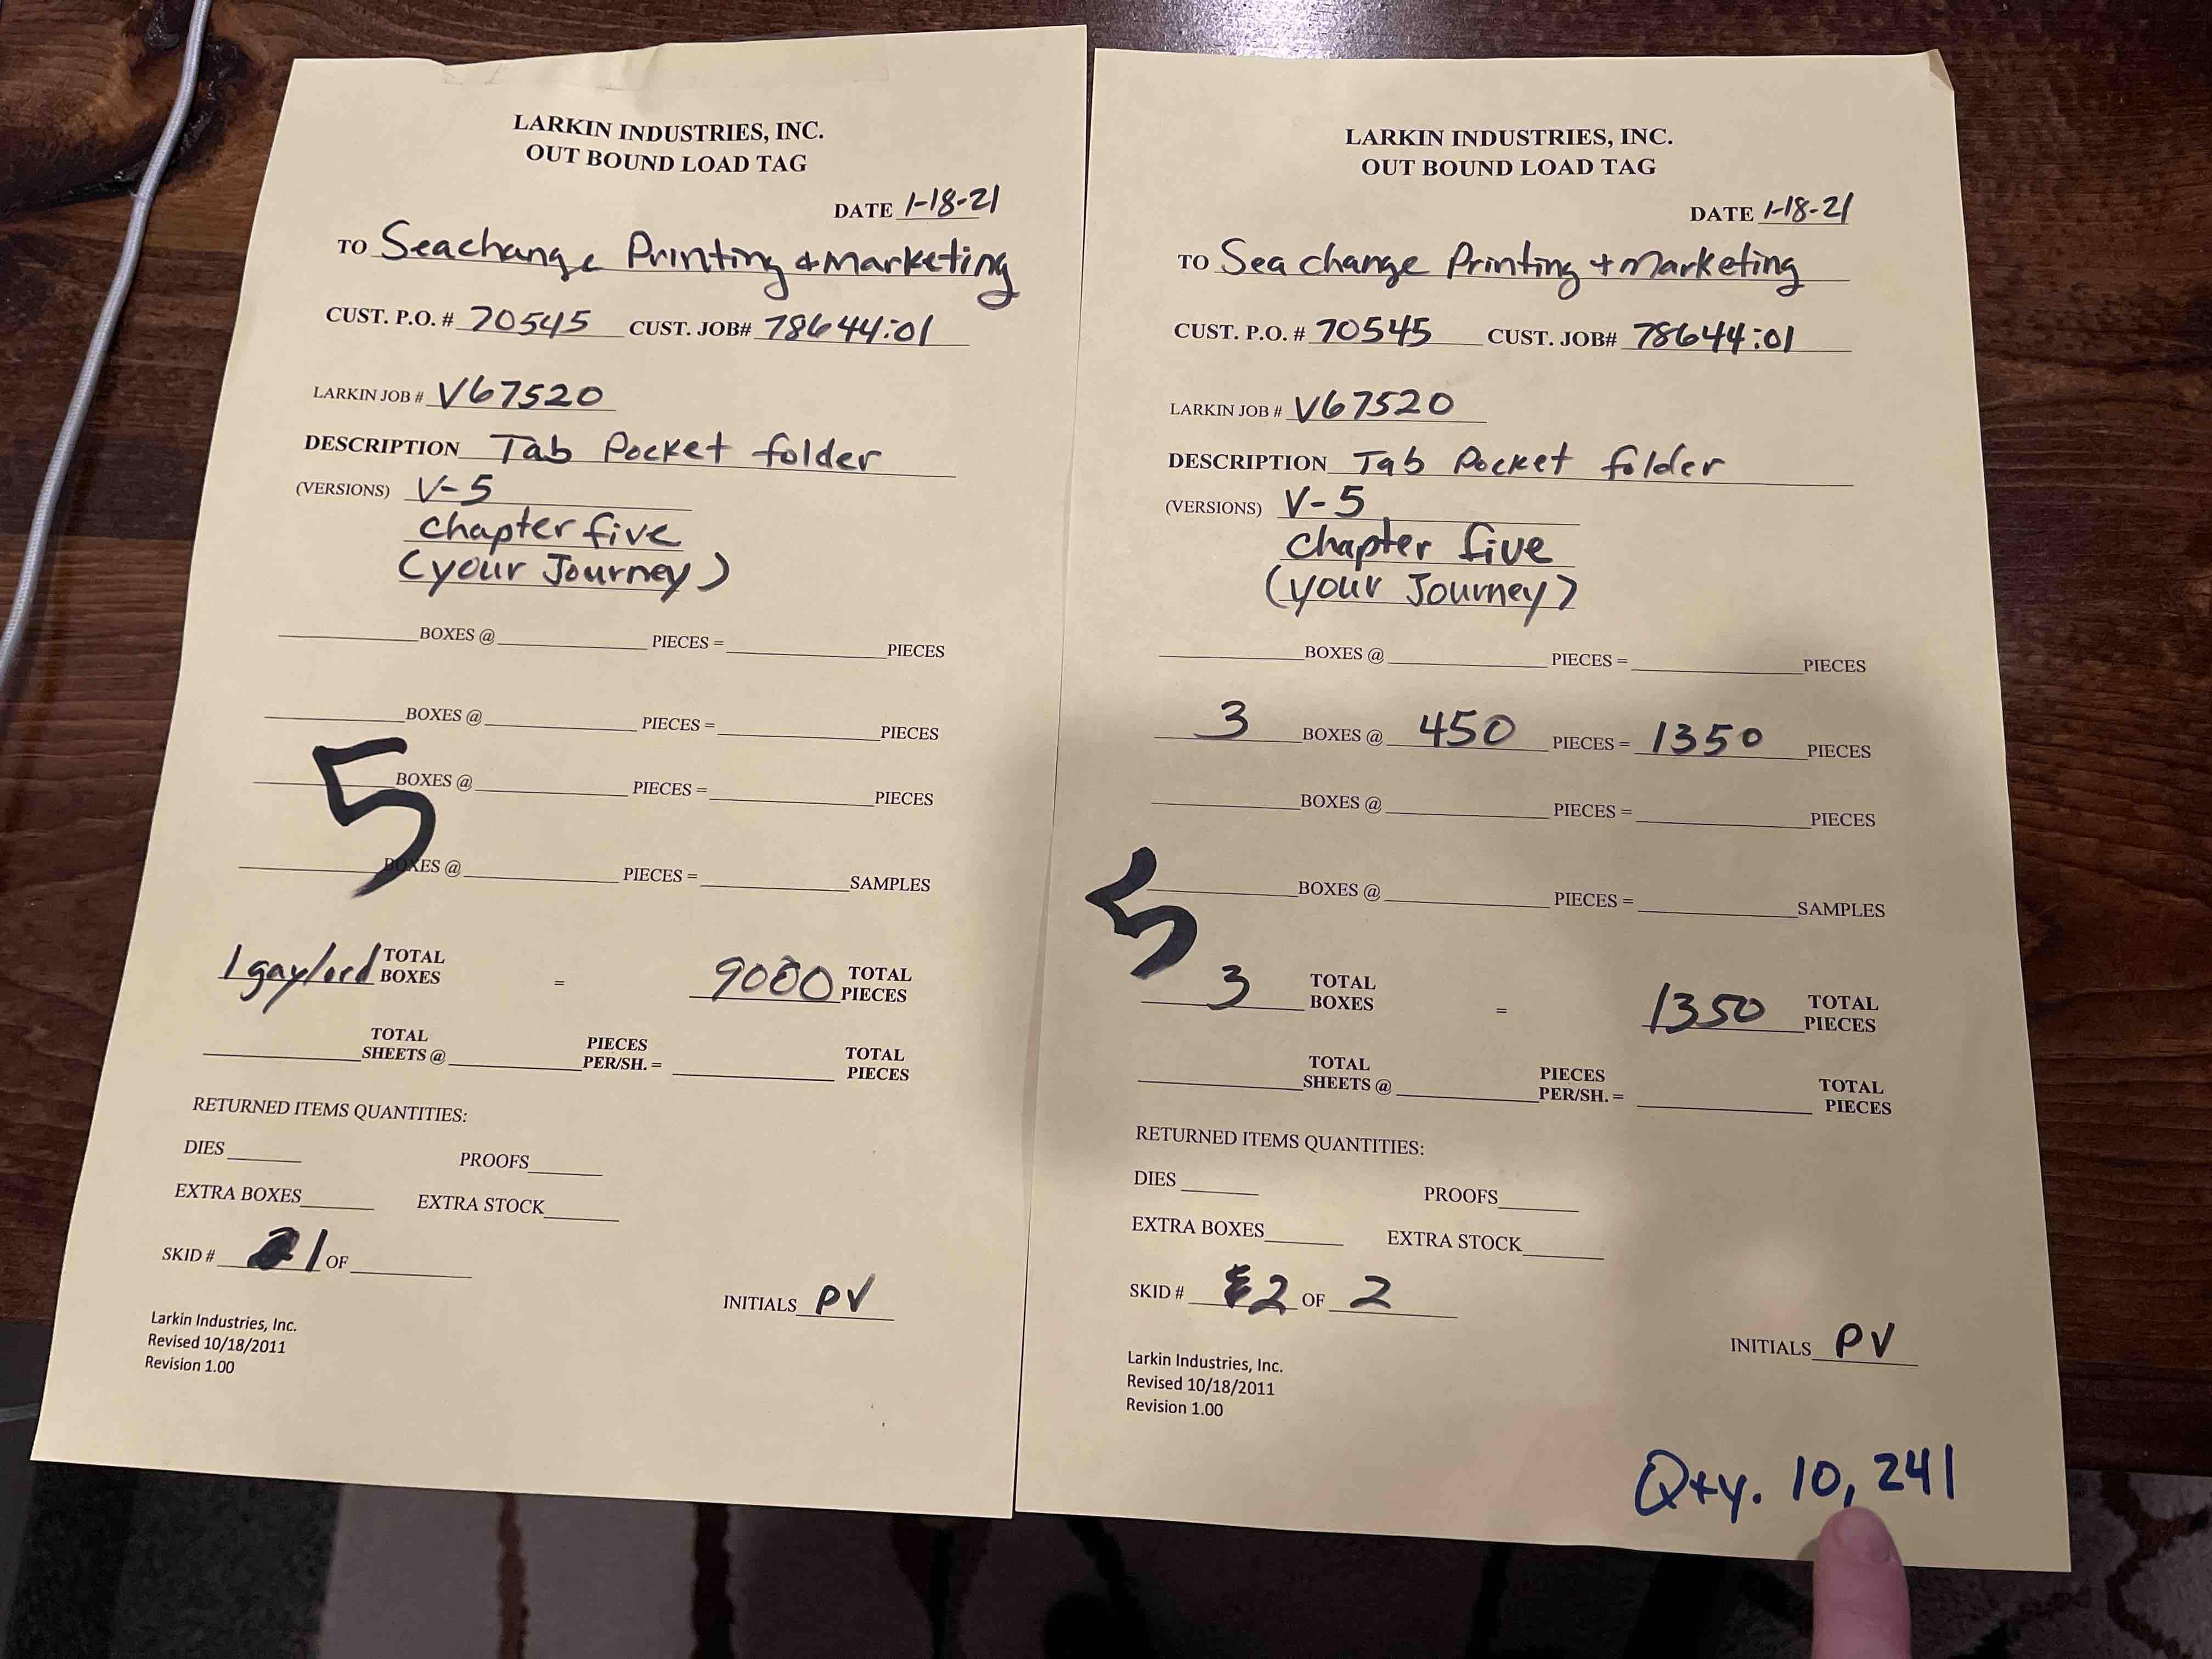 LARKIN INDUSTRIES, INC.
OUT BOUND LOAD TAG
DATE 1-18-21
TO Seachange Printing + Marketing
CUST. P.O. # 70545 CUST. JOB# 78644:01
LARKIN JOB # V67520
DESCRIPTION Tab Pocket folder
(VERSIONS) V-5
chapter five
(your Journey)
BOXES @ PIECES = PIECES
BOXES @ PIECES = PIECES
5
BOXES @ PIECES = PIECES
BOXES @ PIECES = SAMPLES
1 gaylord TOTAL BOXES = 9000 TOTAL PIECES
TOTAL SHEETS @ PIECES PER/SH. = TOTAL PIECES
RETURNED ITEMS QUANTITIES:
DIES PROOFS
EXTRA BOXES EXTRA STOCK
SKID # 1 OF
INITIALS PV
Larkin Industries, Inc.
Revised 10/18/2011
Revision 1.00
LARKIN INDUSTRIES, INC.
OUT BOUND LOAD TAG
DATE 1-18-21
TO Sea change Printing + Marketing
CUST. P.O. # 70545 CUST. JOB# 78644:01
LARKIN JOB # V67520
DESCRIPTION Tab Pocket folder
(VERSIONS) V-5
chapter five
(your Journey)
BOXES @ PIECES = PIECES
3 BOXES @ 450 PIECES = 1350 PIECES
BOXES @ PIECES = PIECES
BOXES @ PIECES = SAMPLES
5
3 TOTAL BOXES = 1350 TOTAL PIECES
TOTAL SHEETS @ PIECES PER/SH. = TOTAL PIECES
RETURNED ITEMS QUANTITIES:
DIES PROOFS
EXTRA BOXES EXTRA STOCK
SKID # 2 OF 2
INITIALS PV
Larkin Industries, Inc.
Revised 10/18/2011
Revision 1.00
Qty. 10,241